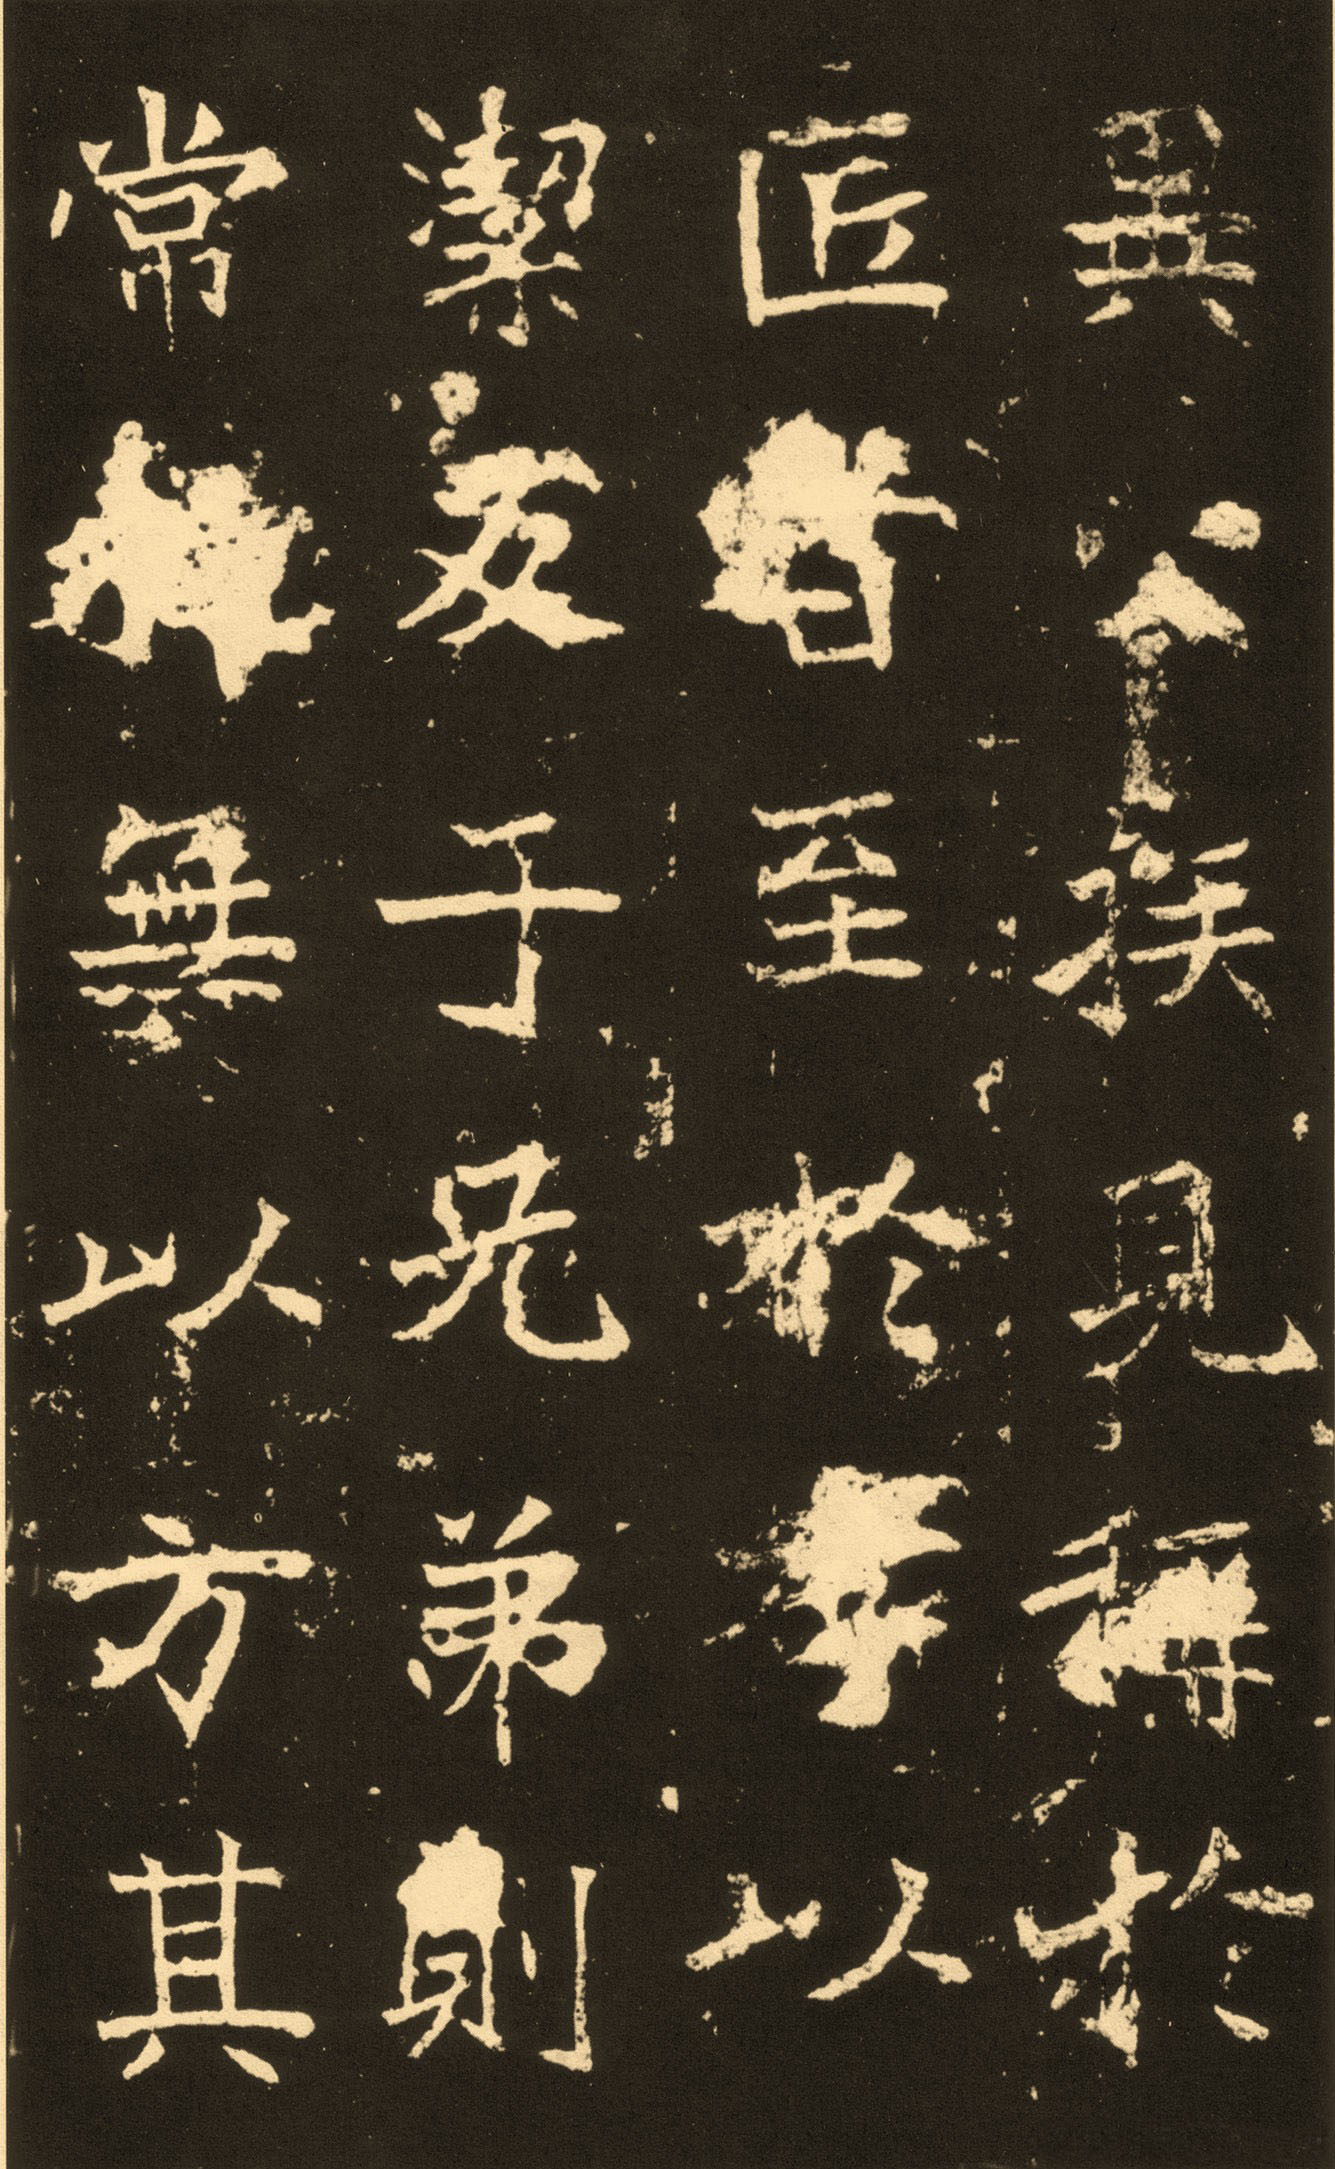 異公族見稱於
匠者至於孝以
潔友于兄弟則
常棣無以方其